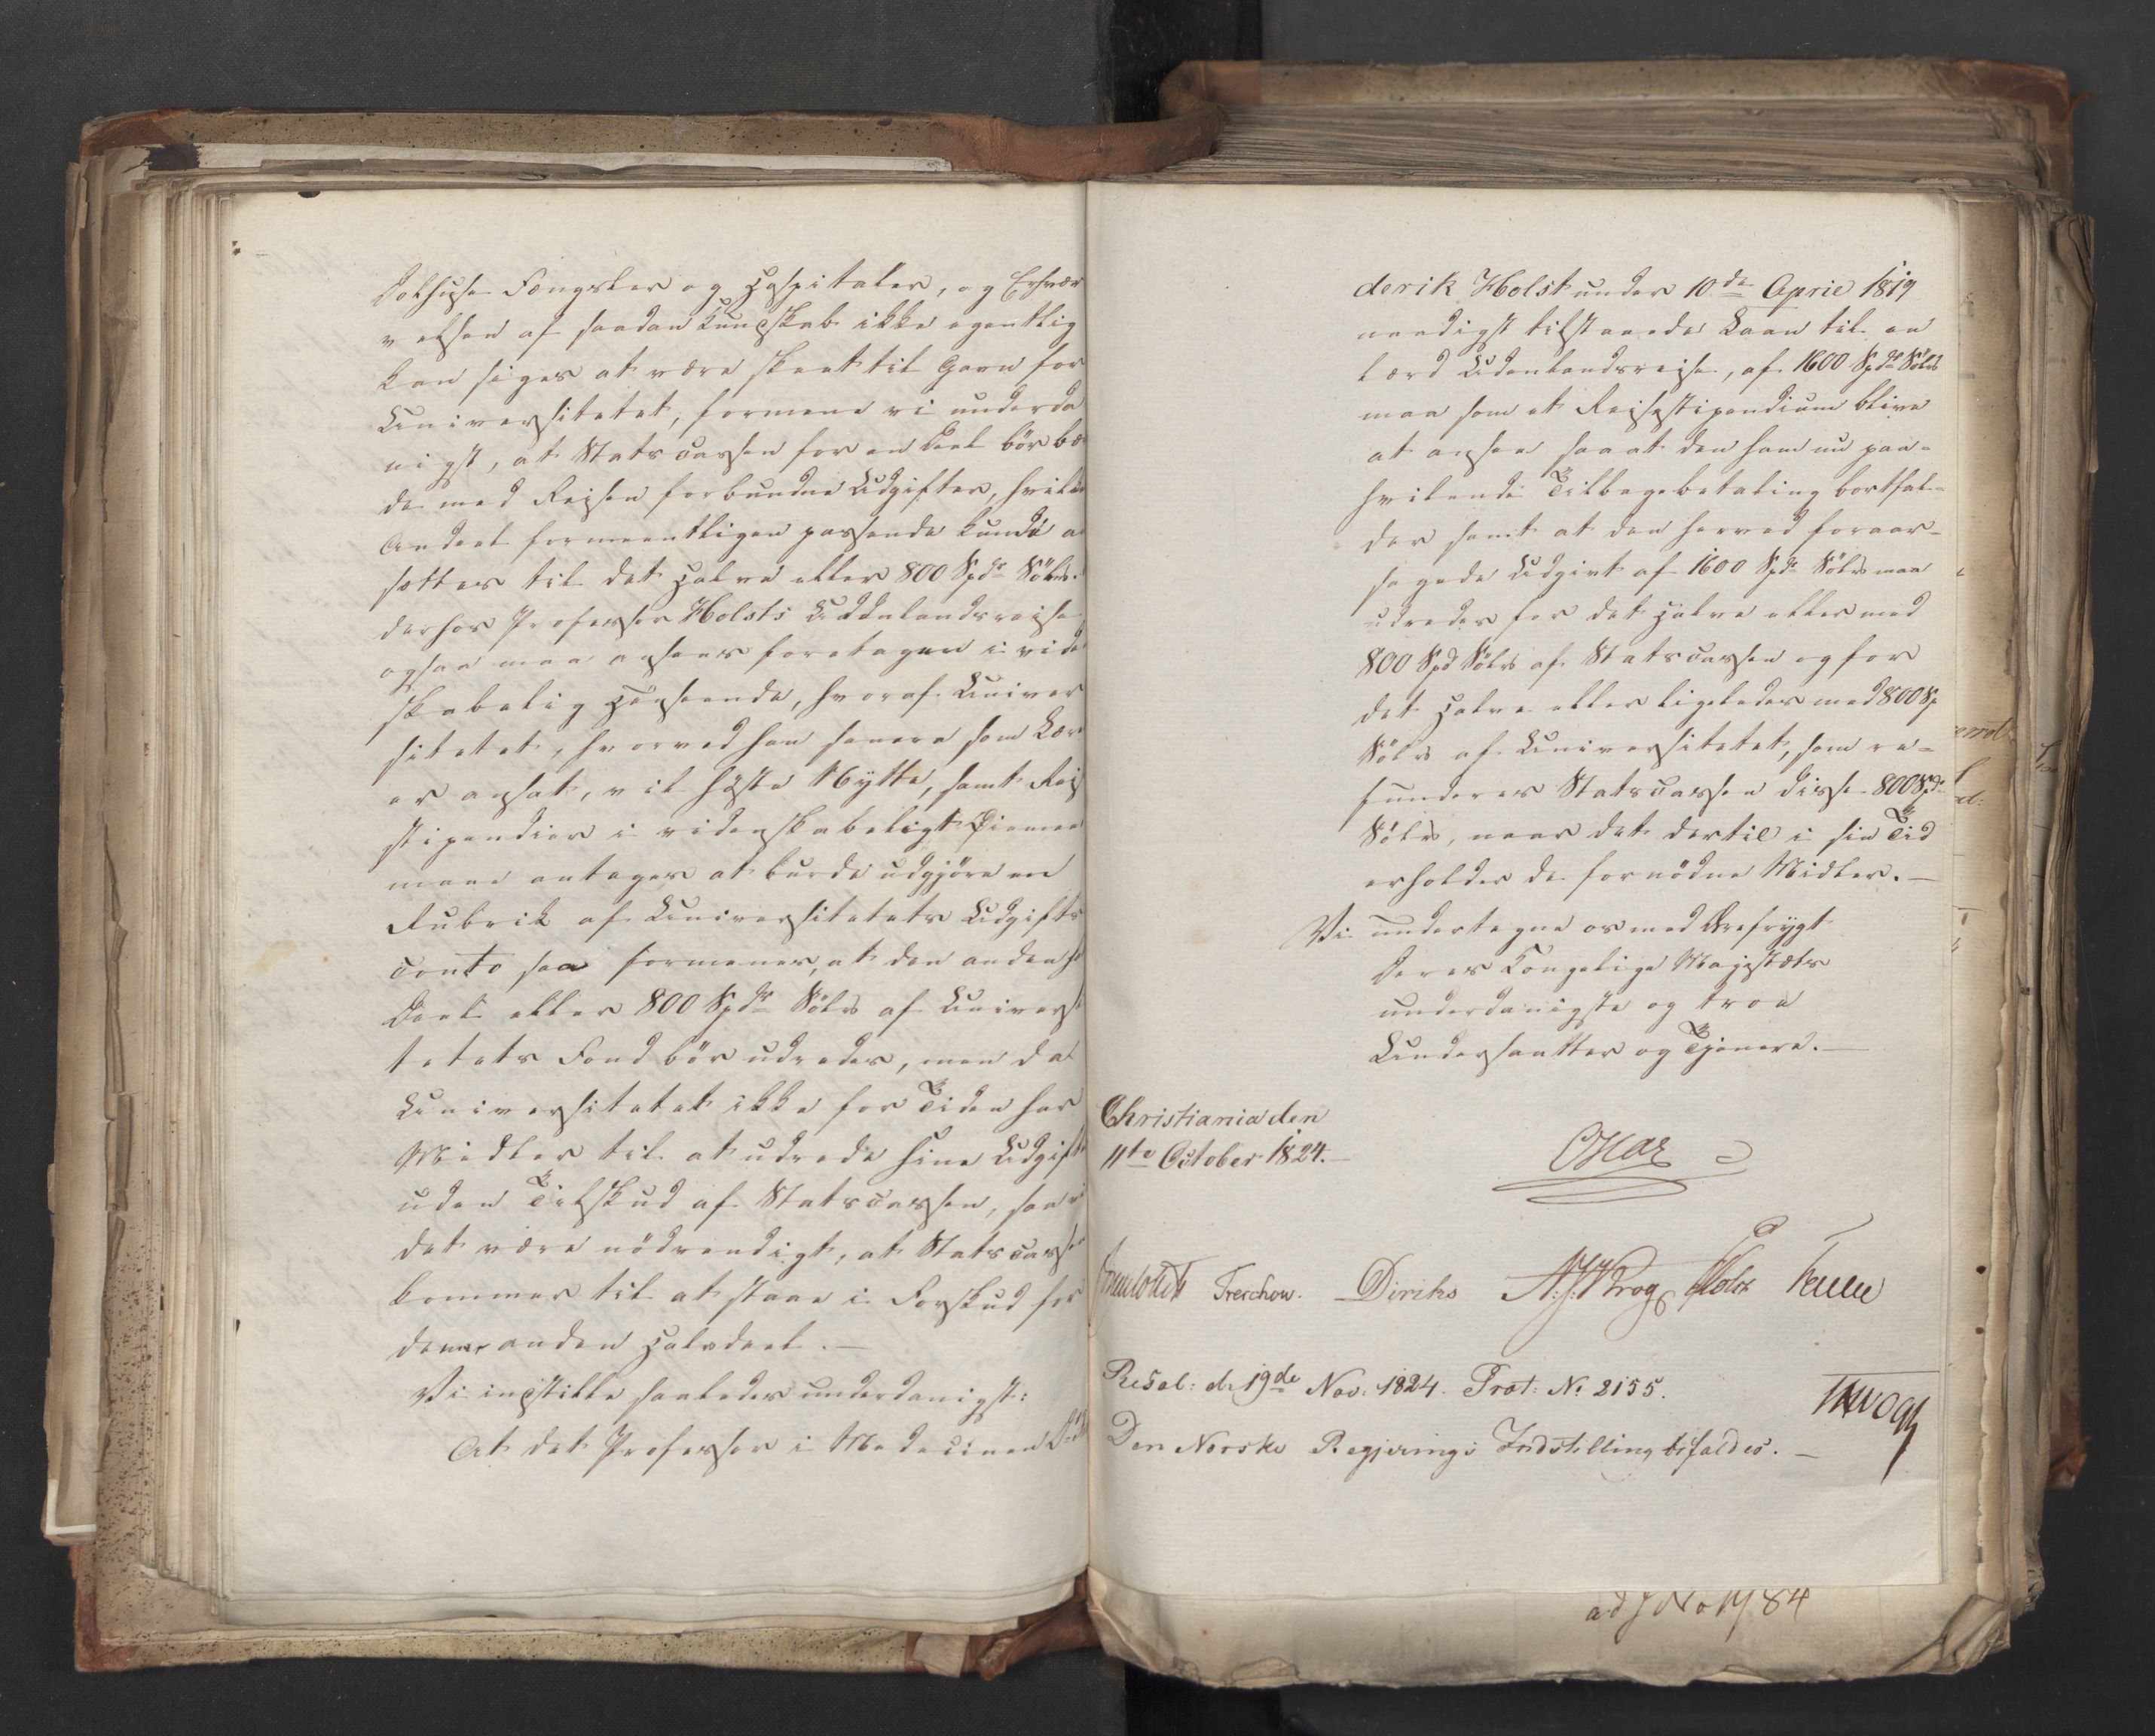 Dolhuse Fængsler og Hospitaler, og Erhver
velsen af saadan Kundskab ikke egentlig
kan siges at være skeet til Gavn for
Universitetet, formene vi underda
nigst, at Statscassen for en Deel bør bæ
de med Reisen forbundne Udgifter, hvilken
Andeel formeentligen passende kunde an
sættes til det Halve eller 800 Spdr Sölv.
derhos Professor Holsts Udenlandsreise
ogsaa maa ansees foretagen i viden
skabelig Henseende, hvoraf Univer
sitetet, hvorved han senere som Lærer
er ansat, vil høste Nytte, samt Reise
stipendier i videnskabeligt Øiemed
maae antages at burde udgjöre en
Rubrik af Universitetets Udgifts
Conto saa formenes, at den anden
Deel eller 800 Spdr Sölv af Universi
tetets Fond bör udredes, men da
Universitetet ikke for Tiden har
Midler til at udrede sine Udgifter
uden Tilskud af Statscassen, saa vil
det være nödvendigt, at Statscassen
kommer til at staae i Forskud for
denne anden Halvdeel.—
Vi indstille saaledes underdanigst:
At det Professor i Medecinen
derik Holst under 10de April 1819
naadigst tilstaaede Laan til en
lærd Udenlandsreise, af 1600 Spdr Sölv
maa som et Reisestipendium blive
at ansee saaat den ham nu paa-
hvilende Tilbagebetaling bortfal-
der samt at den herved foraar-
sagede Udgivt af 1600 Spdr Sölv maa
udredes for det Halve eller med
800 Spd Sölv af Statscassen og for
det Halve eller ligeledes med 800 Sp
Sölv af Universitetet, som re-
funderer Statscassen disse 800 Spdr
Sölv, naar det dertil i sin Tid
erholder de fornödne Midler.—
Vi undertegne os med Ærefrygt
Deres Kongelige Majestæts
underdanigste og troe
Undersaatter og Tjenere.—
Christiania den
11te October 1824.—
Oscar
Treschow. Diriks A. J. Krog Holst
Resol: d. 19de Nov: 1824. Prot: No 2155.
Den Norske Regjerings Indstilling bifaldes.—